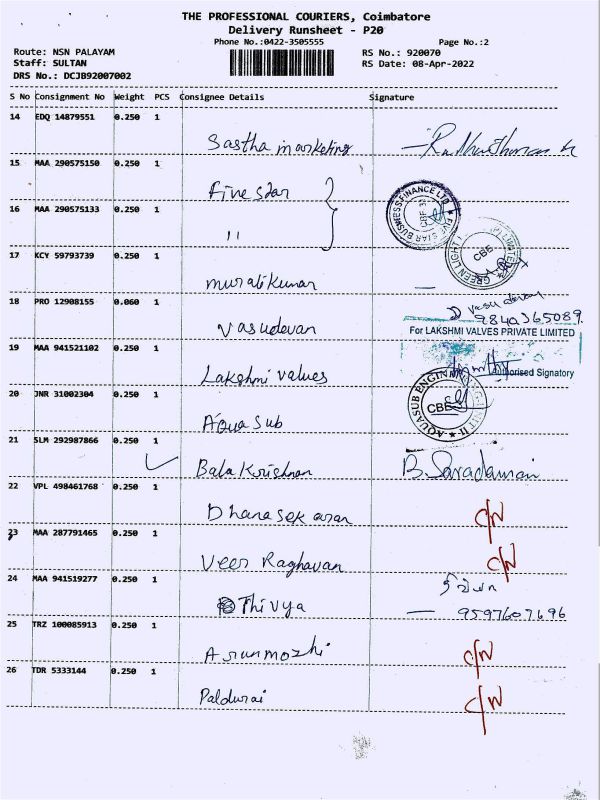 THE PROFESSIONAL COURIERS, Coimbatore
Delivery Runsheet - P20
Phone No.:0422-3505555
Page No.:2
Route: NSN PALAYAM
RS No.: 920070
Staff: SULTAN
RS Date: 08-Apr-2022
DRS No.: DCJB92007002
S No Consignment No Weight PCS Consignee Details Signature
14 EDQ 14879551 0.250 1
Sastha marketing
15 MAA 290575150 0.250 1
five star
16 MAA 290575133 0.250 1
"
FIVE STAR BUSINESS FINANCE LTD CBE
GREEN LIGHT CBE
17 KCY 59793739 0.250 1
muralikumar
18 PRO 12908155 0.060 1
Vasudevan
Vasudevan
9840365089
19 MAA 941521102 0.250 1
Lakshmi valves
For LAKSHMI VALVES PRIVATE LIMITED
Authorised Signatory
20 JNR 31002304 0.250 1
Aqua Sub
AQUASUB ENGINEERING CBE
21 SLM 292987866 0.250 1
Bala Krishnan B. Saradamani
22 VPL 498461768 0.250 1
Dhanasekaran C/N
23 MAA 287791465 0.250 1
Veer Raghavan C/N
24 MAA 941519277 0.250 1
Thivya 9597607696
25 TRZ 100085913 0.250 1
Arunmozhi C/N
26 TDR 5333144 0.250 1
Paldurai C/N